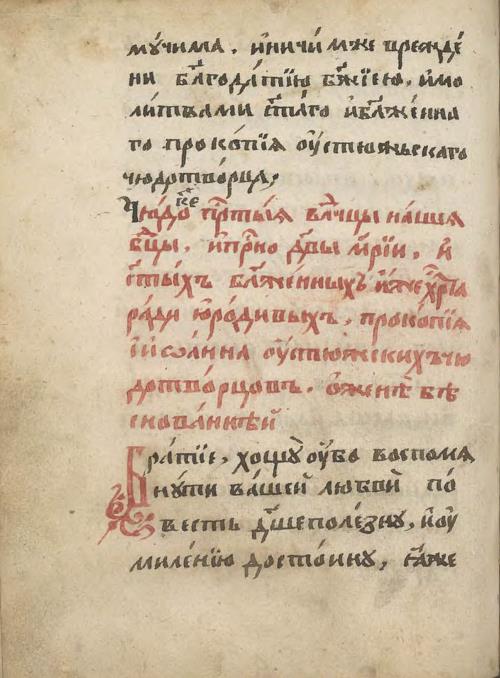 мꙋчима, и҆ничи́мже врежде́
ни бл҃года́тїю бж҃їею, и҆мо
ли́твами ст҃а́го и҆бл҃же́нна
го проко́пїѧ ᲂу҆стю́жьскаго
чюдотво́рца,
Чю́до к҃е прⷭ҇ты́ѧ влⷣчцы на́шеѧ
бцⷣы, и҆прⷭ҇но дв҃ы мр҃і́и, и҆
ст҃ы́хъ бл҃же́нныхъ и҆́же хрⷭ҇та̀
ра́ди ю҆ро́дивыхъ, проко́пїѧ
и҆ і҆ѡа́нна ᲂу҆стю́жскихъ чю
дотво́рцовъ. ѡ҆женѣ̀ бѣ
снова́ннѣй
Бра́тїе, хощꙋ̀ ᲂу҆́бо воспомѧ
нꙋ́ти ва́шей любвѝ по́
весть дш҃еполе́знꙋ, и҆ ᲂу҆
миле́нїю досто́йнꙋ, ꙗ҆́же